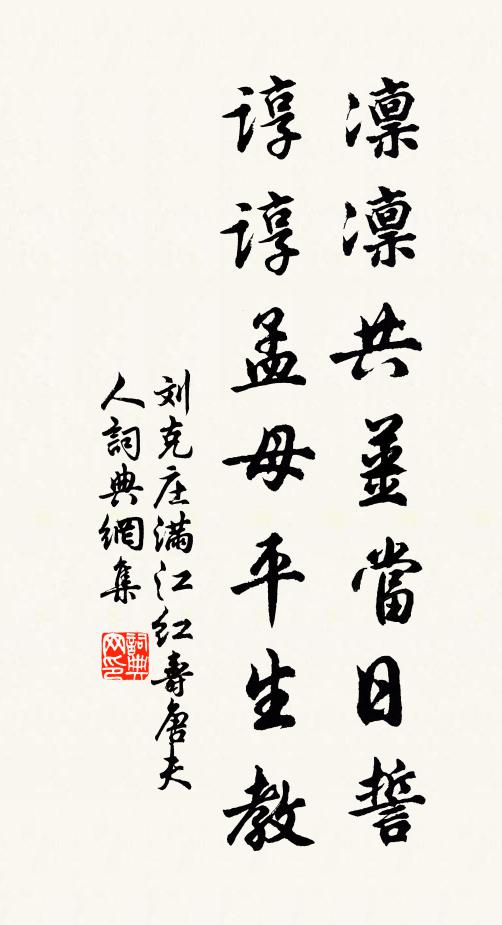 凛凛共薑當日誓
谆谆孟母平生教
刘克庄满江红壽唐夫
人詞典網集
詞典
网印